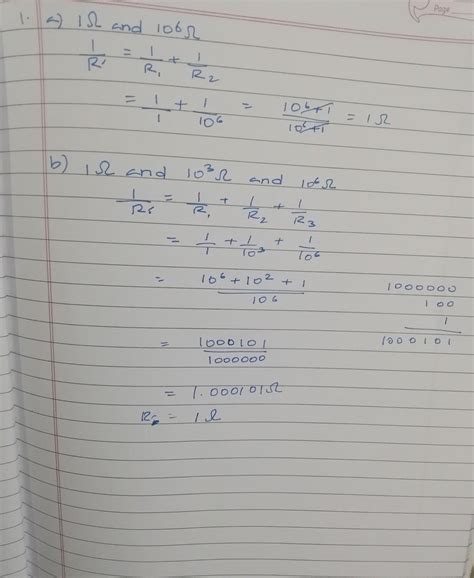 Page
1. a) 1Ω and 10⁶Ω
1/R' = 1/R₁ + 1/R₂
= 1/1 + 1/10⁶ = 10⁶+1/10⁶+1 = 1Ω
b) 1Ω and 10³Ω and 10⁶Ω
1/R' = 1/R₁ + 1/R₂ + 1/R₃
= 1/1 + 1/10³ + 1/10⁶
= 10⁶ + 10² + 1/10⁶
1000000
100
1
1000101
= 1000101/1000000
= 1.000101Ω
= 1Ω